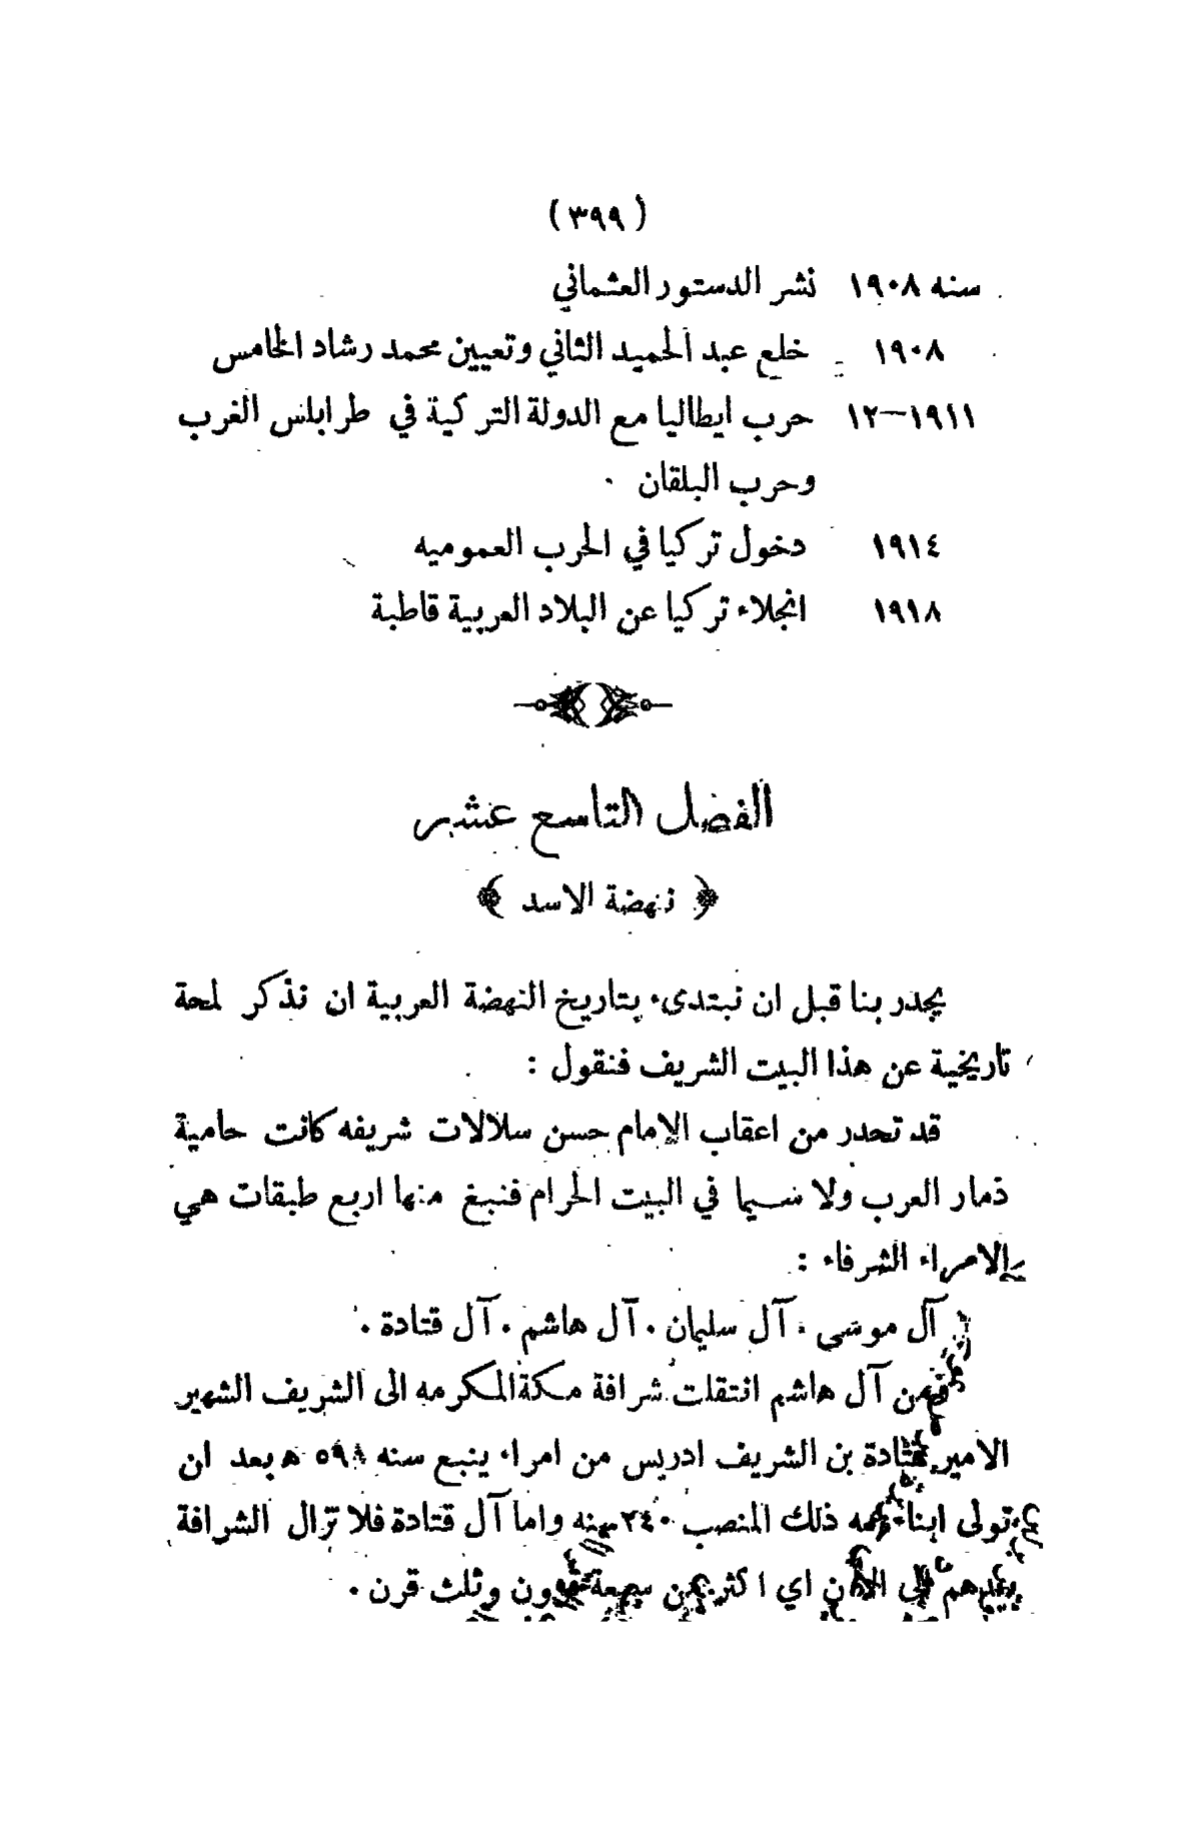 ( ٣٩٩ )
سنه ١٩٠٨ نشر الدستور العثماني
١٩٠٨ خلع عبد الحميد الثاني وتعيين محمد رشاد الخامس
١٩١١—١٢ حرب ايطاليا مع الدولة التركية في طرابلس الغرب
وحرب البلقان .
١٩١٤ دخول تركيا في الحرب العموميه
١٩١٨ انجلاء تركيا عن البلاد العربية قاطبة
الفصل التاسع عشر
﴿ نهضة الاسد ﴾
يجدر بنا قبل ان نبتدىء بتاريخ النهضة العربية ان نذكر لمحة
تاريخية عن هذا البيت الشريف فنقول :
قد تحدر من اعقاب الإمام حسن سلالات شريفه كانت حامية
ذمار العرب ولا سيما في البيت الحرام فنبغ منها اربع طبقات هي
الامراء الشرفاء :
آل موسى . آل سليمان . آل هاشم . آل قتادة .
فمن آل هاشم انتقلت شرافة مكة المكرمه الى الشريف الشهير
الامير قتادة بن الشريف ادريس من امراء ينبع سنه ٥٩٨ ه بعد ان
تولى ابناء عمه ذلك المنصب ٢٤٠ سنه واما آل قتادة فلا تزال الشرافة
بيدهم الى الآن اي اكثر من سبعة قرون وثلث قرن .